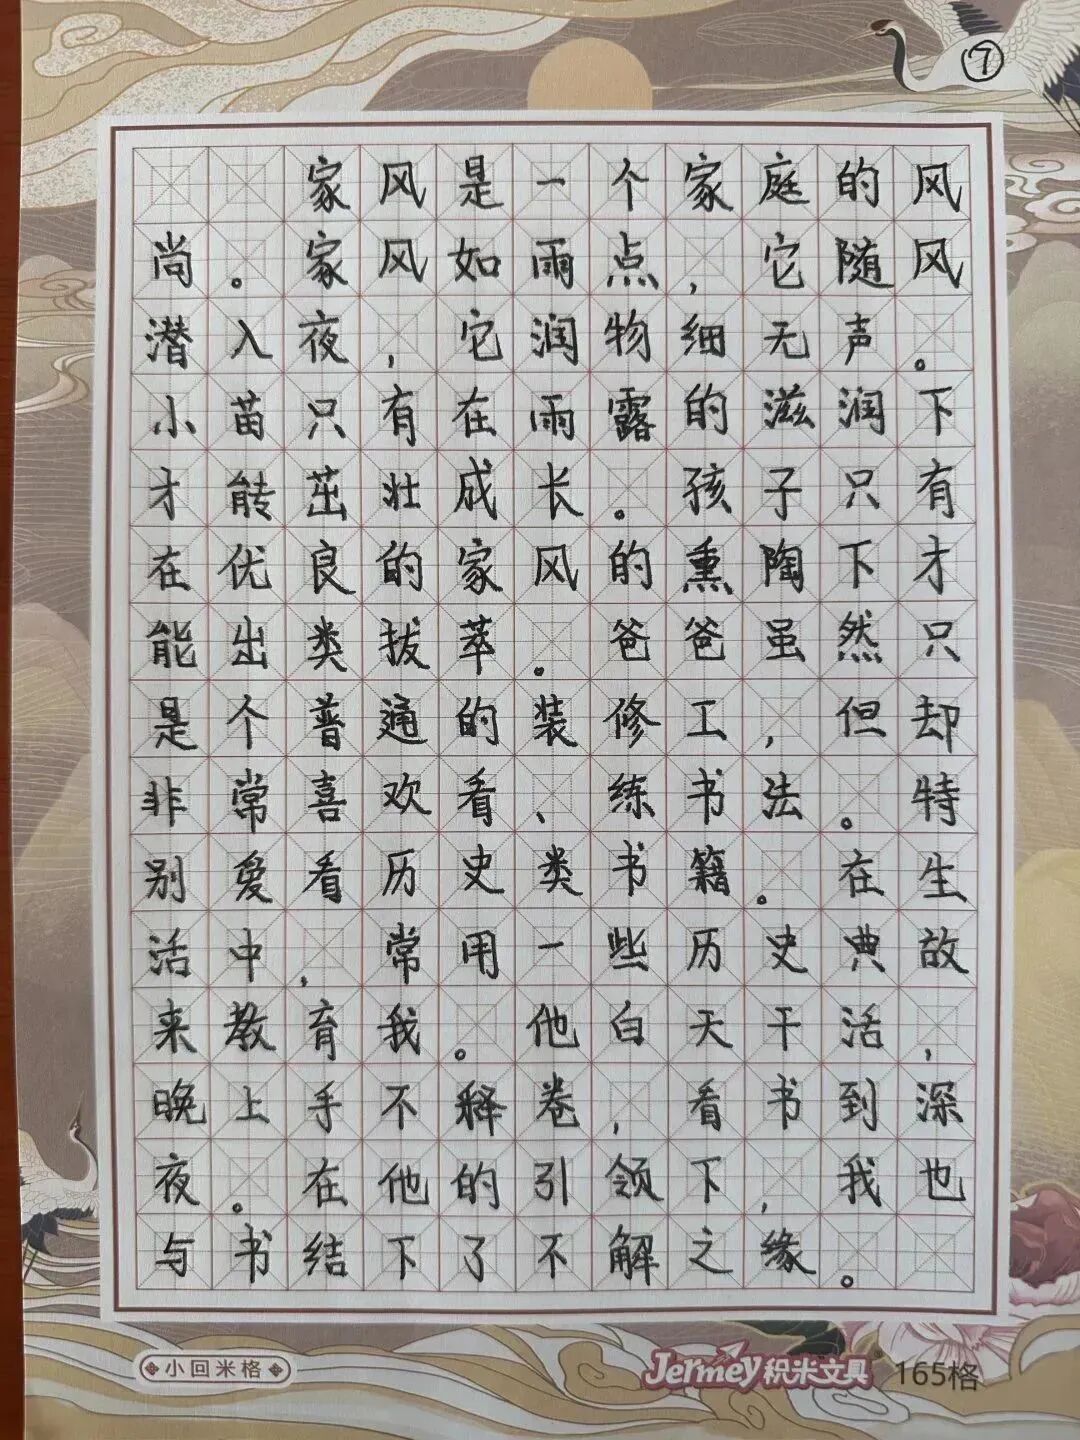 ⑦
家风是一个家庭的风
尚。家风如雨点，它随风
潜入夜，它润物细无声。
小苗只有在雨露的滋润下
才能茁壮成长。孩子只有
在优良的家风的熏陶下才
能出类拔萃。爸爸虽然只
是个普通的装修工，但却
非常喜欢看、练书法。特
别爱看历史类书籍。在生
活中，常用一些历史典故
来教育我。他白天干活，
晚上手不释卷，看书到深
夜。在他的引领下，我也
与书结下了不解之缘。
小回米格
Jermey积米文具 165格